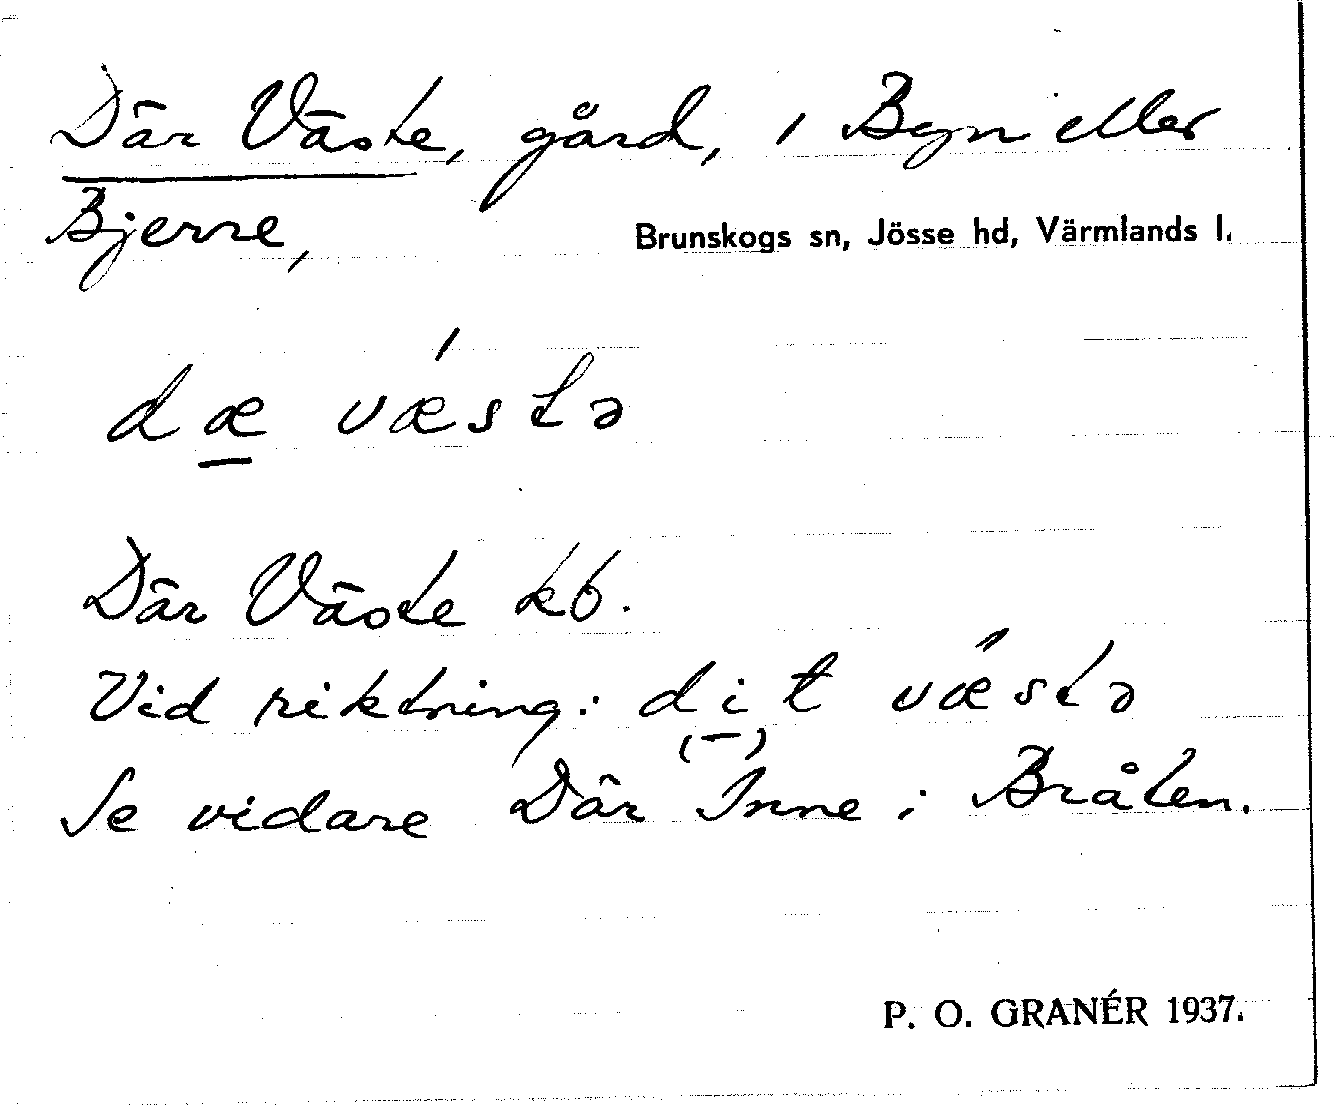 Där Väste, gård, i Byn eller
Bjerne, Brunskogs sn, Jösse hd, Värmlands l.
dæ vǽstə
Där Väste kb.
Vid riktning: dit væ̋stə
(–)
Se vidare Där Inne i Bråten.
P. O. GRANÉR 1937.